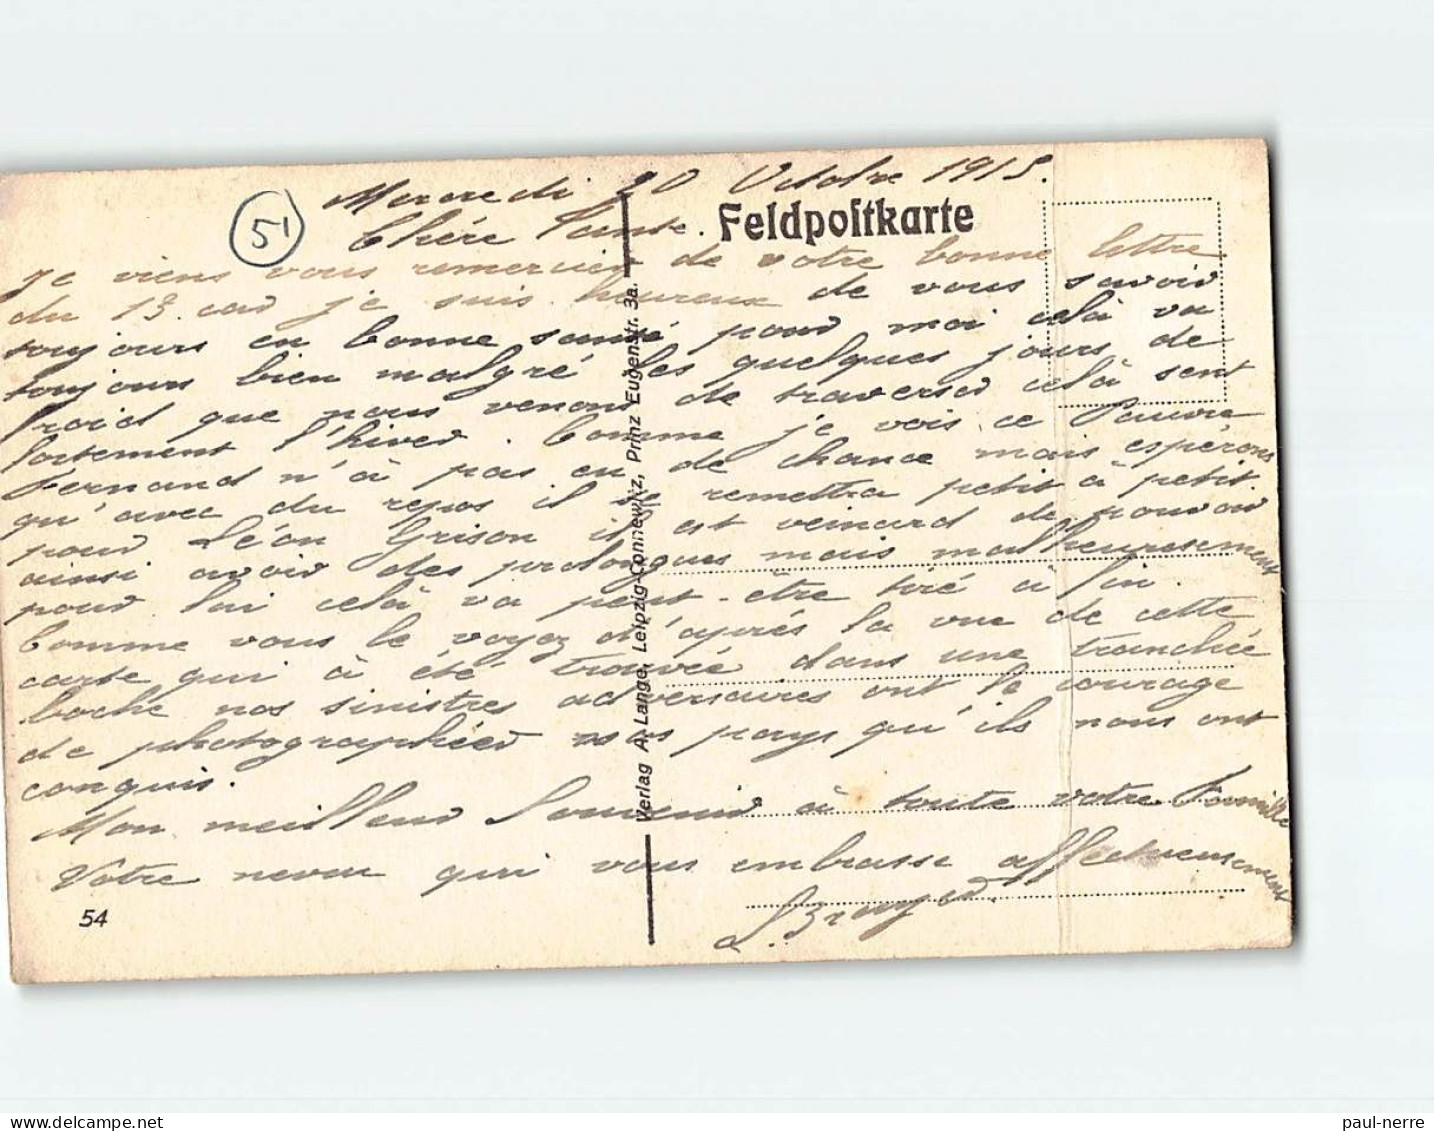 51
Mercredi 20 Octobre 1915.
Chère Tante.
Feldpostkarte
Je viens vous remercier de votre bonne lettre
du 13. car je suis heureux de vous savoir
toujours en bonne santé pour moi celà va
toujours bien malgré les quelques jours de
froid que nous venons de traverser celà sent
fortement l'hiver. Comme je vois ce Pauvre
Fernand n'à pas eu de chance mais espérons
qu'avec du repos il se remettra petit à petit
pour Léon Grison il est veinard de pouvoir
ainsi avoir des prolongues mais malheureusement
pour lui celà va peut-être tiré à fin.
Comme vous le voyez d'après la vue de cette
carte qui à été trouvée dans une tranchée
boche nos sinistres adversaires ont le courage
de photographier nos pays qu'ils nous ont
conquis.
Mon meilleur Souvenir à toute votre Famille
Votre neveu qui vous embrasse affectueusement
54
Verlag A. Lange, Leipzig-Connewitz, Prinz Eugenstr. 3a.
paul-nerre